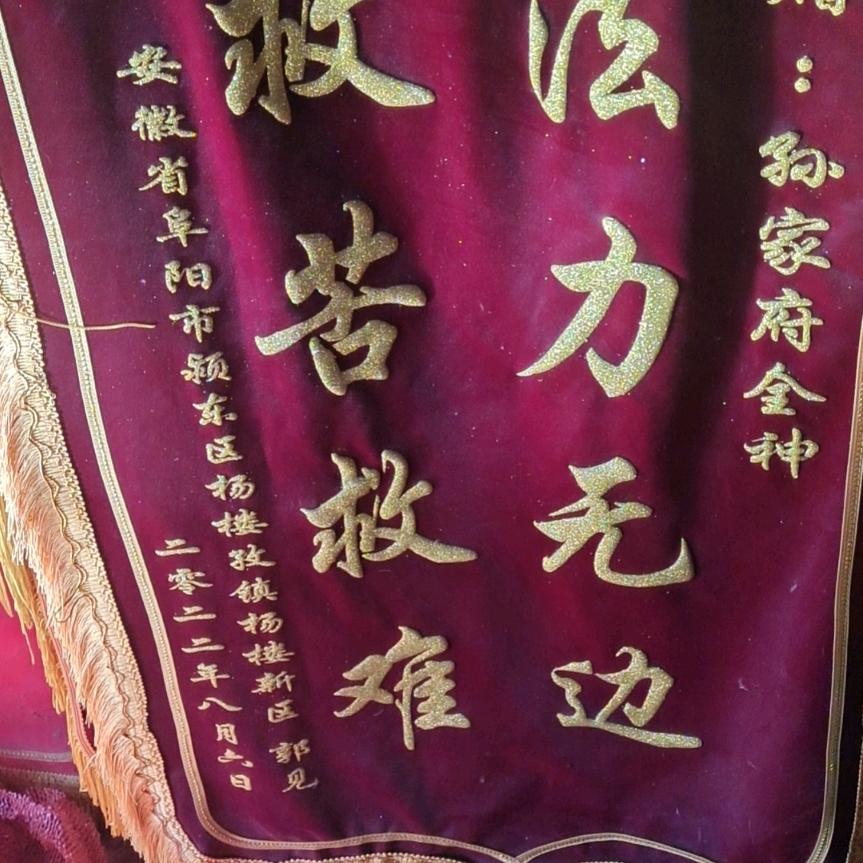 赠：孙家府全神
法力无边
救苦救难
安徽省阜阳市颍东区杨楼孜镇杨楼新区 郭见
二零二二年八月六日